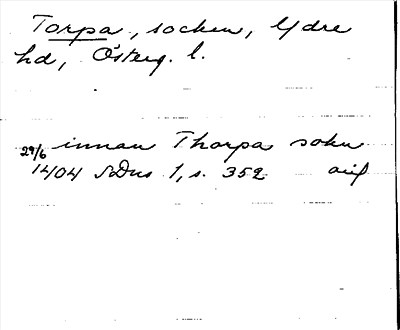 Torpa, socken, Ydre
hd, Österg. l.
29/6 innan Thorpa sokn
1404 SDns 1, s. 352